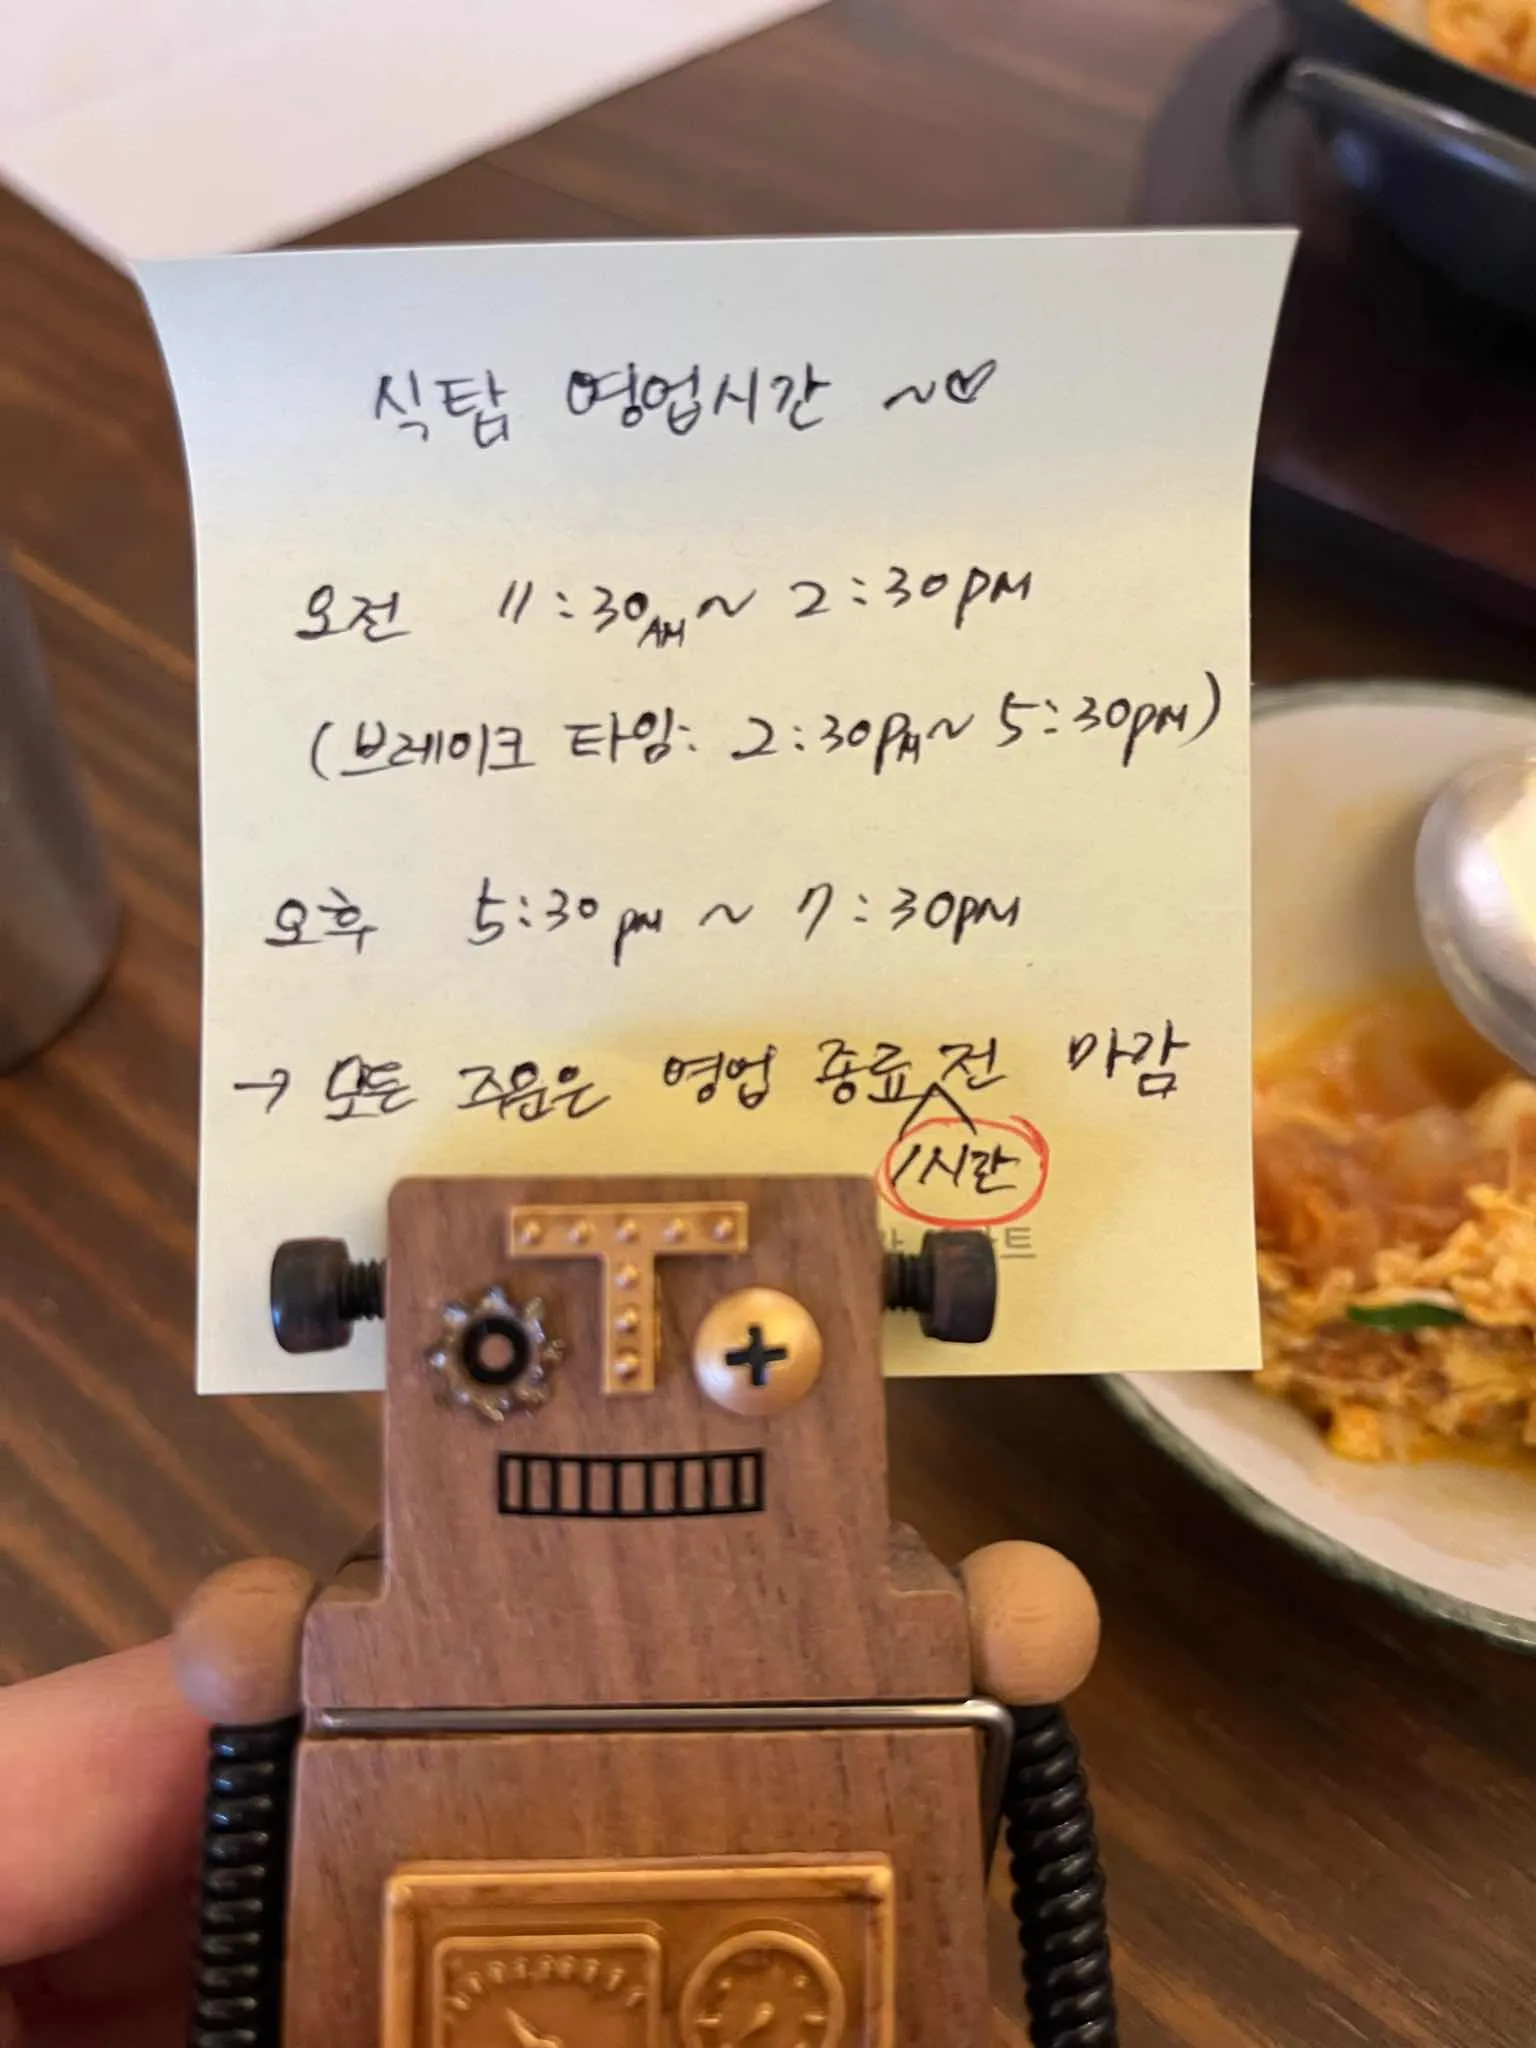 식탑 영업시간 ~♡
오전 11:30AM ~ 2:30PM
(브레이크 타임: 2:30PM ~ 5:30PM)
오후 5:30PM ~ 7:30PM
→ 모든 주문은 영업 종료 1시간 전 마감
T